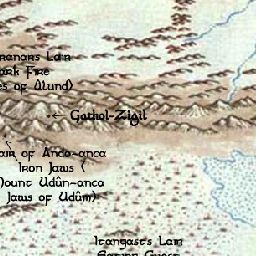 Lair
ark Fire
es of Alund)
Gathol-Zigil
air of Anca-anca
Iron Jaws
Mount Udûn-anca
Jaws of Udûm)
Itangast's Lair